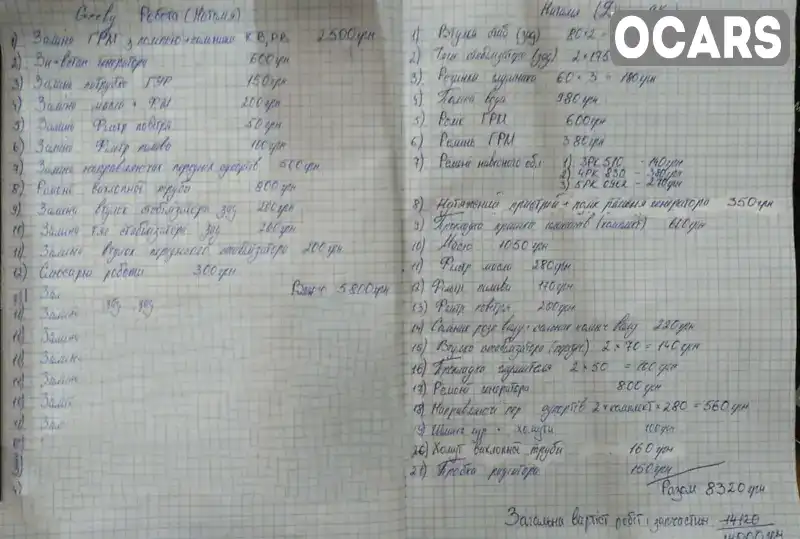 Робота (Наталя)
1) Заміна ГРМ з помпою + сальники КВ, РВ 2500грн
2) Зн-встан генератора 600грн
3) Заміна патрубка ГУР 150грн
4) Заміна масло + ФМ 200грн
5) Заміна Фільтр повітря 50грн
6) Заміна Фільтр палива 100грн
7) Заміна направляючих передніх супортів 500грн
8) Ремонт вихлопної труби 800грн
9) Заміна втулок стабілізатора зад 200грн
10) Заміна тяг стабілізатора зад 200грн
11) Заміна втулок переднього стабілізатора 200грн
12) Слюсарні роботи 300грн
5800грн
Зал
Замін
Заміна
Заміна
Замін
Замі
Зал
Наталя
1) Втулки стаб (зад) 80×2 =
2) Тяги стабілізатора (зад) 2×175
3) Резинки глушника 60×3 = 180грн
4) Помпа вода 980грн
5) Ролік ГРМ 600грн
6) Ремінь ГРМ 380грн
7) Ремені навісного обл 1) 3РК 510 - 140грн
2) 4РК 830 -
3) 5РК 0962 - 270грн
8) Натяжний пристрій + ролік ременя генератора 350грн
9) Прокладка кришки клапанів (комплект) 600грн
10) Масло 1050грн
11) Фільтр масло 280грн
12) Фільтр палива 170грн
13) Фільтр повітря 200грн
14) Сальник розп валу + сальник колінч валу 220грн
15) Втулка стабілізатора (перед) 2×70 = 140грн
16) Прокладка глушителя 2×50 = 100грн
17) Ремонт генератора 800грн
18) Направляючі пер супортів 2×комплект×280 = 560грн
19) Шланг гур + хомути 100грн
20) Хомут вихлопної труби 160грн
21) Пробка радіатора 150грн
Разом 8320грн
Загальна вартість робіт і запчастин 14120
14000грн
OCARS